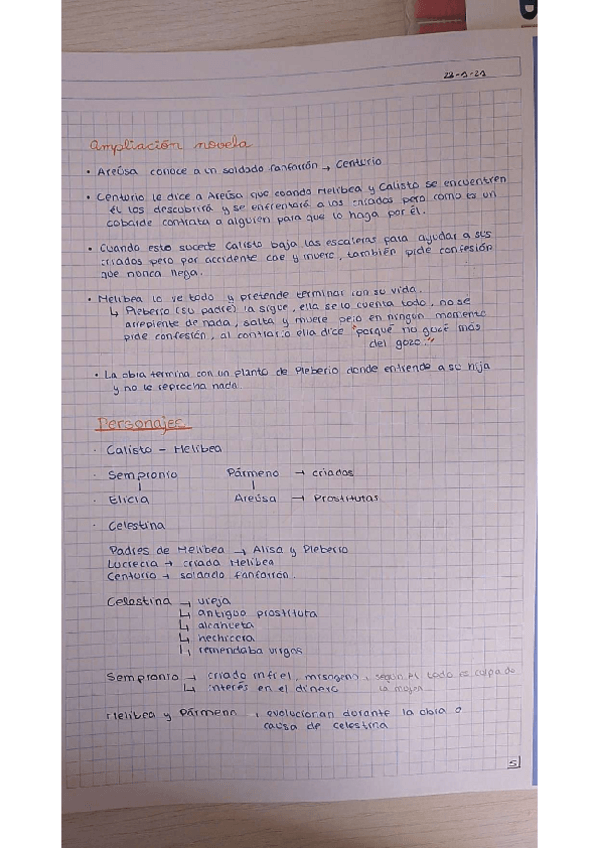 D
23-9-21
Ampliación novela
· Areúsa conoce a un soldado fanfarrón → Centurio
· Centurio le dice a Areúsa que cuando Melibea y Calisto se encuentren
él los descubrirá y se enfrentará a los criados pero como es un
cobarde contrata a alguien para que lo haga por él.
· Cuando esto sucede Calisto baja las escaleras para ayudar a sus
criados pero por accidente cae y muere, también pide confesión
que nunca llega.
· Melibea lo ve todo y pretende terminar con su vida.
↳ Pleberio (su padre) la sigue, ella se lo cuenta todo, no se
arrepiente de nada, salta y muere pero en ningún momento
pide confesión, al contrario ella dice "porqué no gocé más
del gozo."
· La obra termina con un planto de Pleberio donde entiende a su hija
y no le reprocha nada.
Personajes
· Calisto - Melibea
· Sempronio Pármeno → criados
· Elicia Areúsa → Prostitutas
· Celestina
Padres de Melibea → Alisa y Pleberio
Lucrecia → criada Melibea
Centurio → soldado fanfarrón.
Celestina → vieja
↳ antigua prostituta
↳ alcahueta
↳ hechicera
↳ remendaba virgos
Sempronio → criado infiel, misógeno, según él todo es culpa de
la mujer
↳ interés en el dinero
Melibea y Pármeno, evolucionan durante la obra a
causa de celestina
5